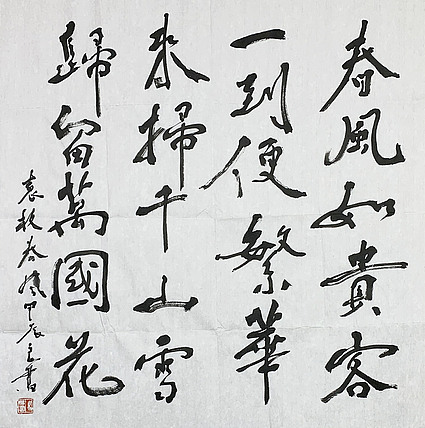 春風如貴客
一到便繁華
来掃千山雪
歸留萬國花
袁枚春風甲辰立書